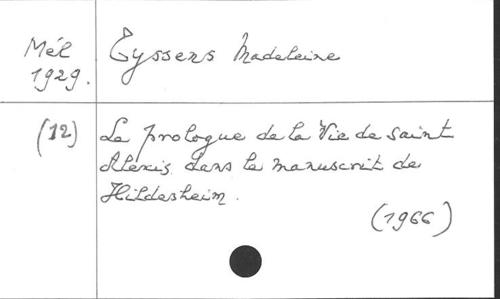 Mél
1929.
Tyssens Madeleine
(12)
Le prologue de la Vie de saint
Alexis dans le manuscrit de
Hildesheim.
(1966)